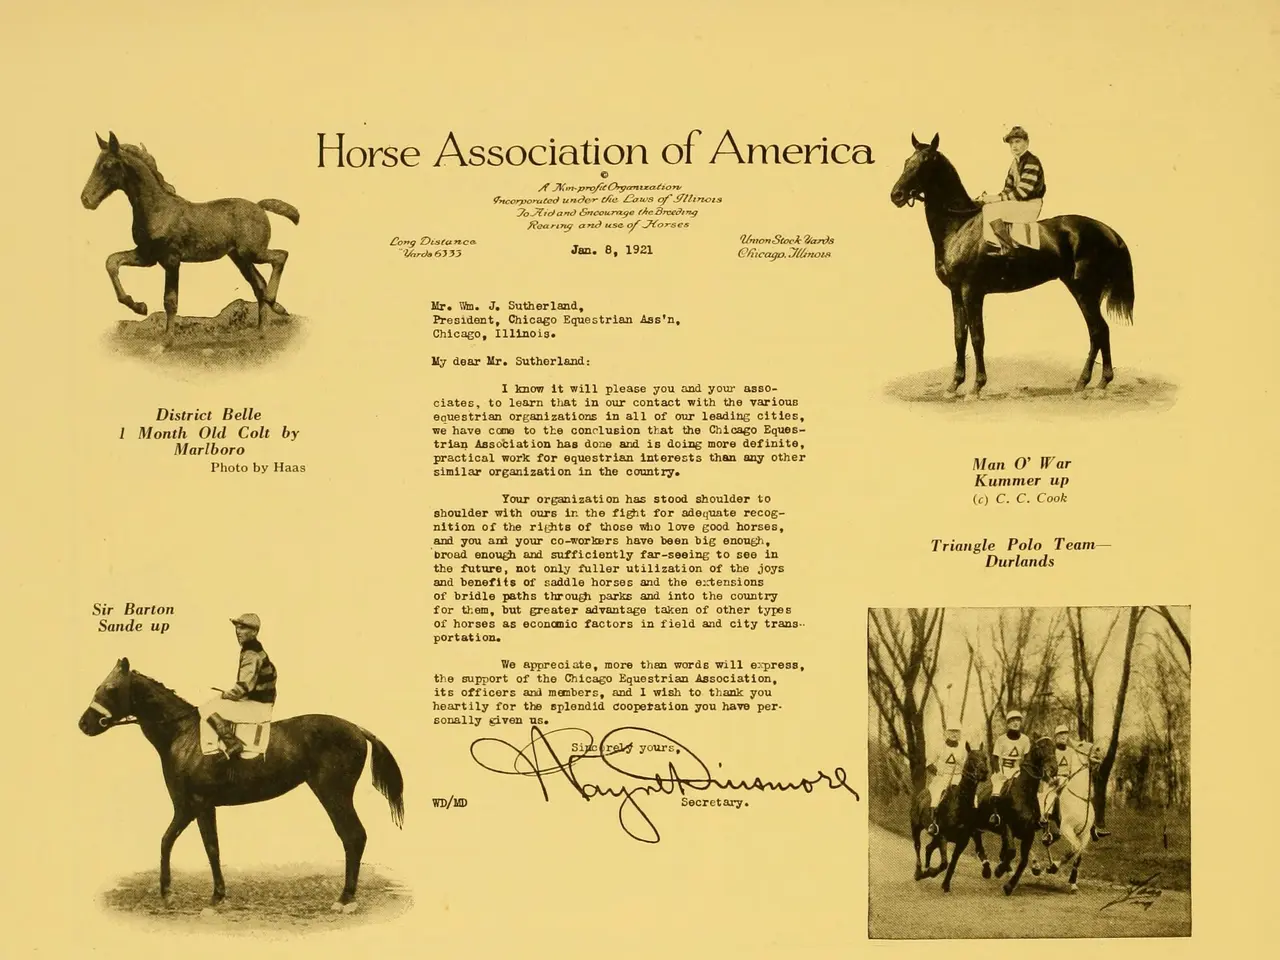 Horse Association of America
©
A Non-profit Organization
Incorporated under the Laws of Illinois
To Aid and Encourage the Breeding
Rearing and use of Horses
Long Distance
Yards 6333
Jan. 8, 1921
Union Stock Yards
Chicago, Illinois
Mr. Wm. J. Sutherland,
President, Chicago Equestrian Ass'n,
Chicago, Illinois.
My dear Mr. Sutherland:
I know it will please you and your asso-
ciates, to learn that in our contact with the various
equestrian organizations in all of our leading cities,
we have come to the conclusion that the Chicago Eques-
trian Association has done and is doing more definite,
practical work for equestrian interests than any other
similar organization in the country.
Your organization has stood shoulder to
shoulder with ours in the fight for adequate recog-
nition of the rights of those who love good horses,
and you and your co-workers have been big enough,
broad enough and sufficiently far-seeing to see in
the future, not only fuller utilization of the joys
and benefits of saddle horses and the extensions
of bridle paths through parks and into the country
for them, but greater advantage taken of other types
of horses as economic factors in field and city trans-
portation.
We appreciate, more than words will express,
the support of the Chicago Equestrian Association,
its officers and members, and I wish to thank you
heartily for the splendid cooperation you have per-
sonally given us.
Sincerely yours,
Wayne Dinsmore
WD/MD
Secretary.
District Belle
1 Month Old Colt by
Marlboro
Photo by Haas
Sir Barton
Sande up
Man O' War
Kummer up
(c) C. C. Cook
Triangle Polo Team—
Durlands